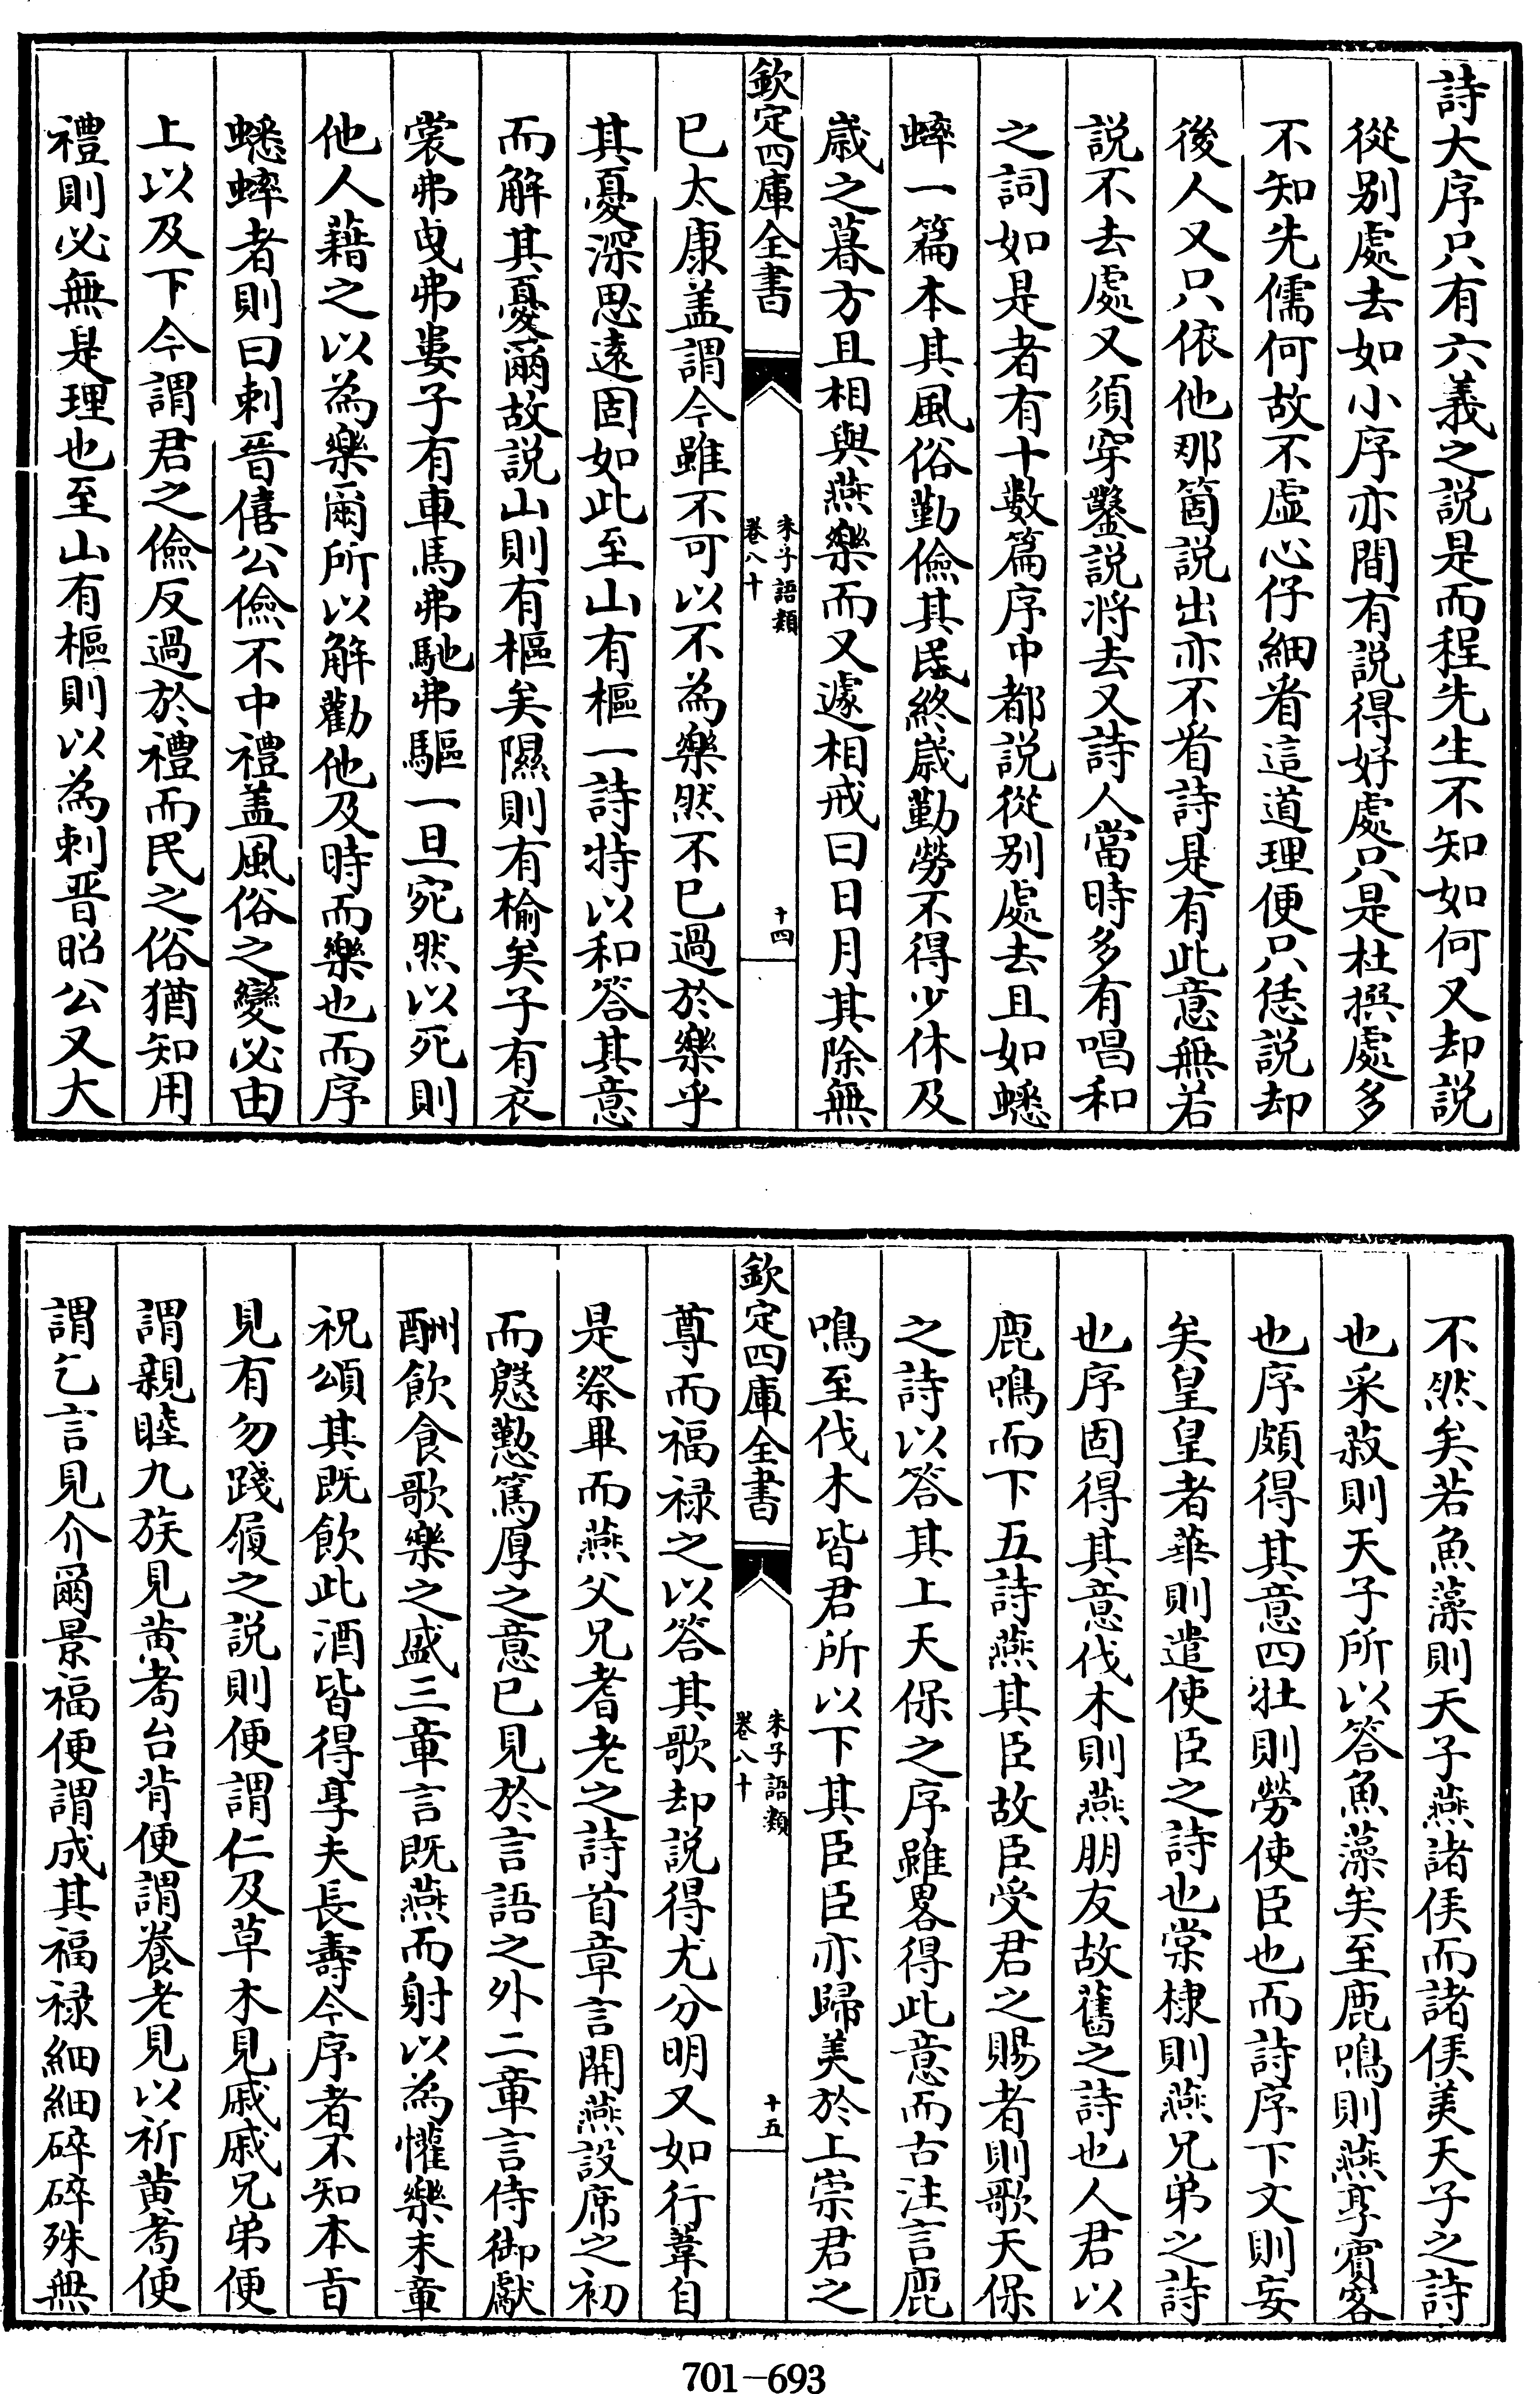 詩大序只有六義之説是而程先生不知如何又却説
從别處去如小序亦間有説得好處只是杜撰處多
不知先儒何故不虛心仔細㸔這道理便只恁説却
後人又只依他那箇説出亦不㸔詩是有此意無若
説不去處又須穿鑿説将去又詩人當時多有唱和
之詞如是者有十數篇序中都説從别處去且如蟋
蟀一篇本其風俗勤儉其民終嵗勤勞不得少休及
嵗之暮方且相與燕樂而又遽相戒曰日月其除無
欽定四庫全書
朱子語類
卷八十
十四
已太康盖謂今雖不可以不為樂然不已過於樂乎
其憂深思逺固如此至山有樞一詩特以和答其意
而解其憂爾故説山則有樞矣隰則有榆矣子有衣
裳弗曵弗婁子有車馬弗馳弗驅一旦宛然以死則
他人藉之以為樂爾所以解勸他及時而樂也而序
蟋蟀者則曰刺晉僖公儉不中禮盖風俗之變必由
上以及下今謂君之儉反過於禮而民之俗猶知用
禮則必無是理也至山有樞則以為刺晉昭公又大
不然矣若魚藻則天子燕諸侯而諸侯美天子之詩
也采菽則天子所以答魚藻矣至鹿鳴則燕享賓客
也序頗得其意四牡則勞使臣也而詩序下文則妄
矣皇皇者華則遣使臣之詩也棠棣則燕兄弟之詩
也序固得其意伐木則燕朋友故舊之詩也人君以
鹿鳴而下五詩燕其臣故臣受君之賜者則歌天保
之詩以答其上天保之序雖畧得此意而古注言鹿
鳴至伐木皆君所以下其臣臣亦歸美於上崇君之
欽定四庫全書
朱子語類
卷八十
十五
尊而福禄之以答其歌却説得尤分明又如行葦自
是祭畢而燕父兄耆老之詩首章言開燕設席之初
而慇懃篤厚之意已見於言語之外二章言侍御獻
酬飲食歌樂之盛三章言既燕而射以為懽樂末章
祝頌其既飲此酒皆得享夫長壽今序者不知本㫖
見有勿踐履之説則便謂仁及草木見戚戚兄弟便
謂親睦九族見黄耇台背便謂養老見以祈黄耇便
謂乞言見介爾景福便謂成其福禄細細碎碎殊無
701-693